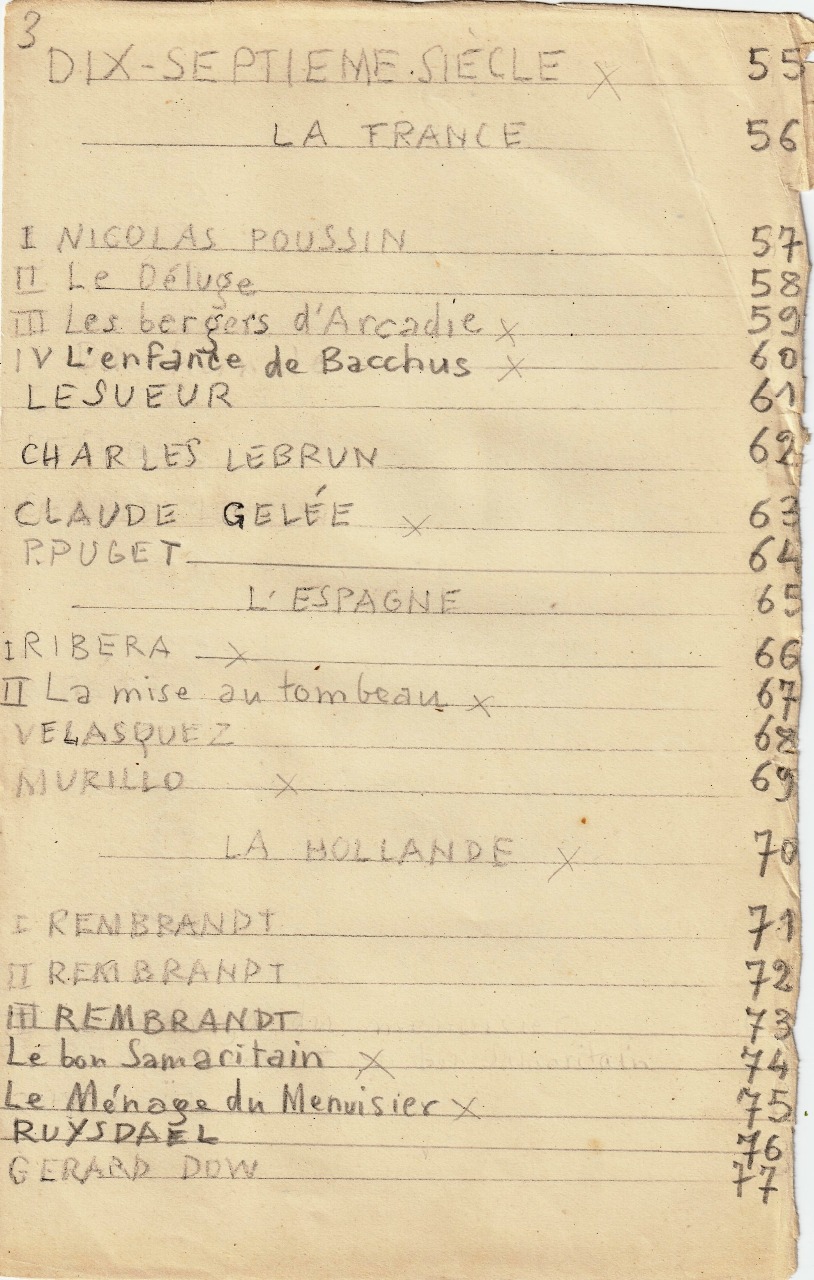 3
DIX-SEPTIEME.SIÈCLE x 55
LA FRANCE 56
I NICOLAS POUSSIN 57
II Le Déluge 58
III Les bergers d'Arcadie x 59
IV L'enfance de Bacchus x 60
LESUEUR 61
CHARLES LEBRUN 62
CLAUDE GELÉE x 63
P.PUGET 64
L'ESPAGNE 65
I RIBERA x 66
II La mise au tombeau x 67
VELASQUEZ 68
MURILLO x 69
LA HOLLANDE x 70
I REMBRANDT 71
II REMBRANDT 72
III REMBRANDT 73
Le bon Samaritain x 74
Le Ménage du Menuisier x 75
RUYSDAEL 76
GERARD DOW 77